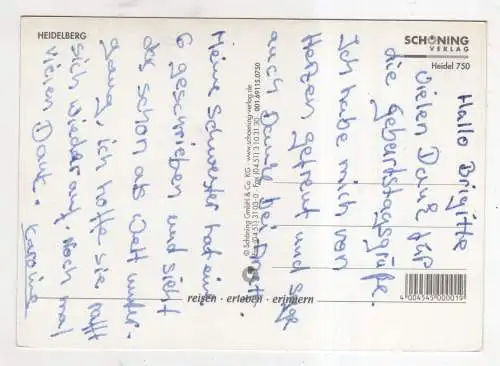 HEIDELBERG
SCHÖNING
VERLAG
Heidel 750
Hallo Brigitte
vielen Dank für
die Geburtstagsgrüße.
Ich habe mich von
Herzen gefreut und sage
auch Danke bei
Meine Schwester hat eine
6 geschrieben und sieht
das schon als Weltunter-
gang, ich hoffe sie rafft
sich wieder auf. Noch mal
vielen Dank. Karoline
© Schöning GmbH & Co. KG · www.schoening-verlag.de
Fon (04 51) 3 10 3-0 · Fax (04 51) 3 10 31 30 · 001.69115.0750
reisen · erleben · erinnern
4 004545 000019